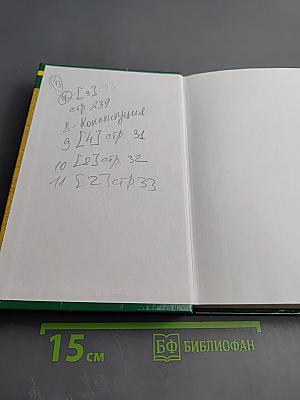 [3]
стр 239
8-Конституция
9 [4] стр. 31
10 [8] стр. 32
11 [2] стр 33
15 см
БФ БИБЛИОФАН